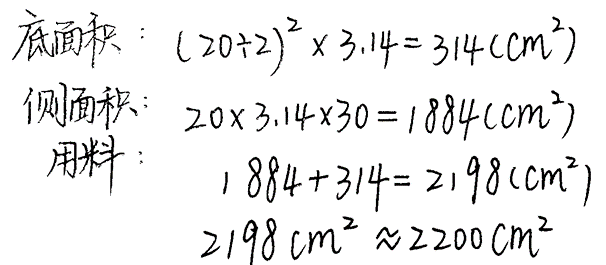 底面积：(20÷2)²×3.14=314(cm²)
侧面积：20×3.14×30=1884(cm²)
用料：
1884+314=2198(cm²)
2198cm²≈2200cm²